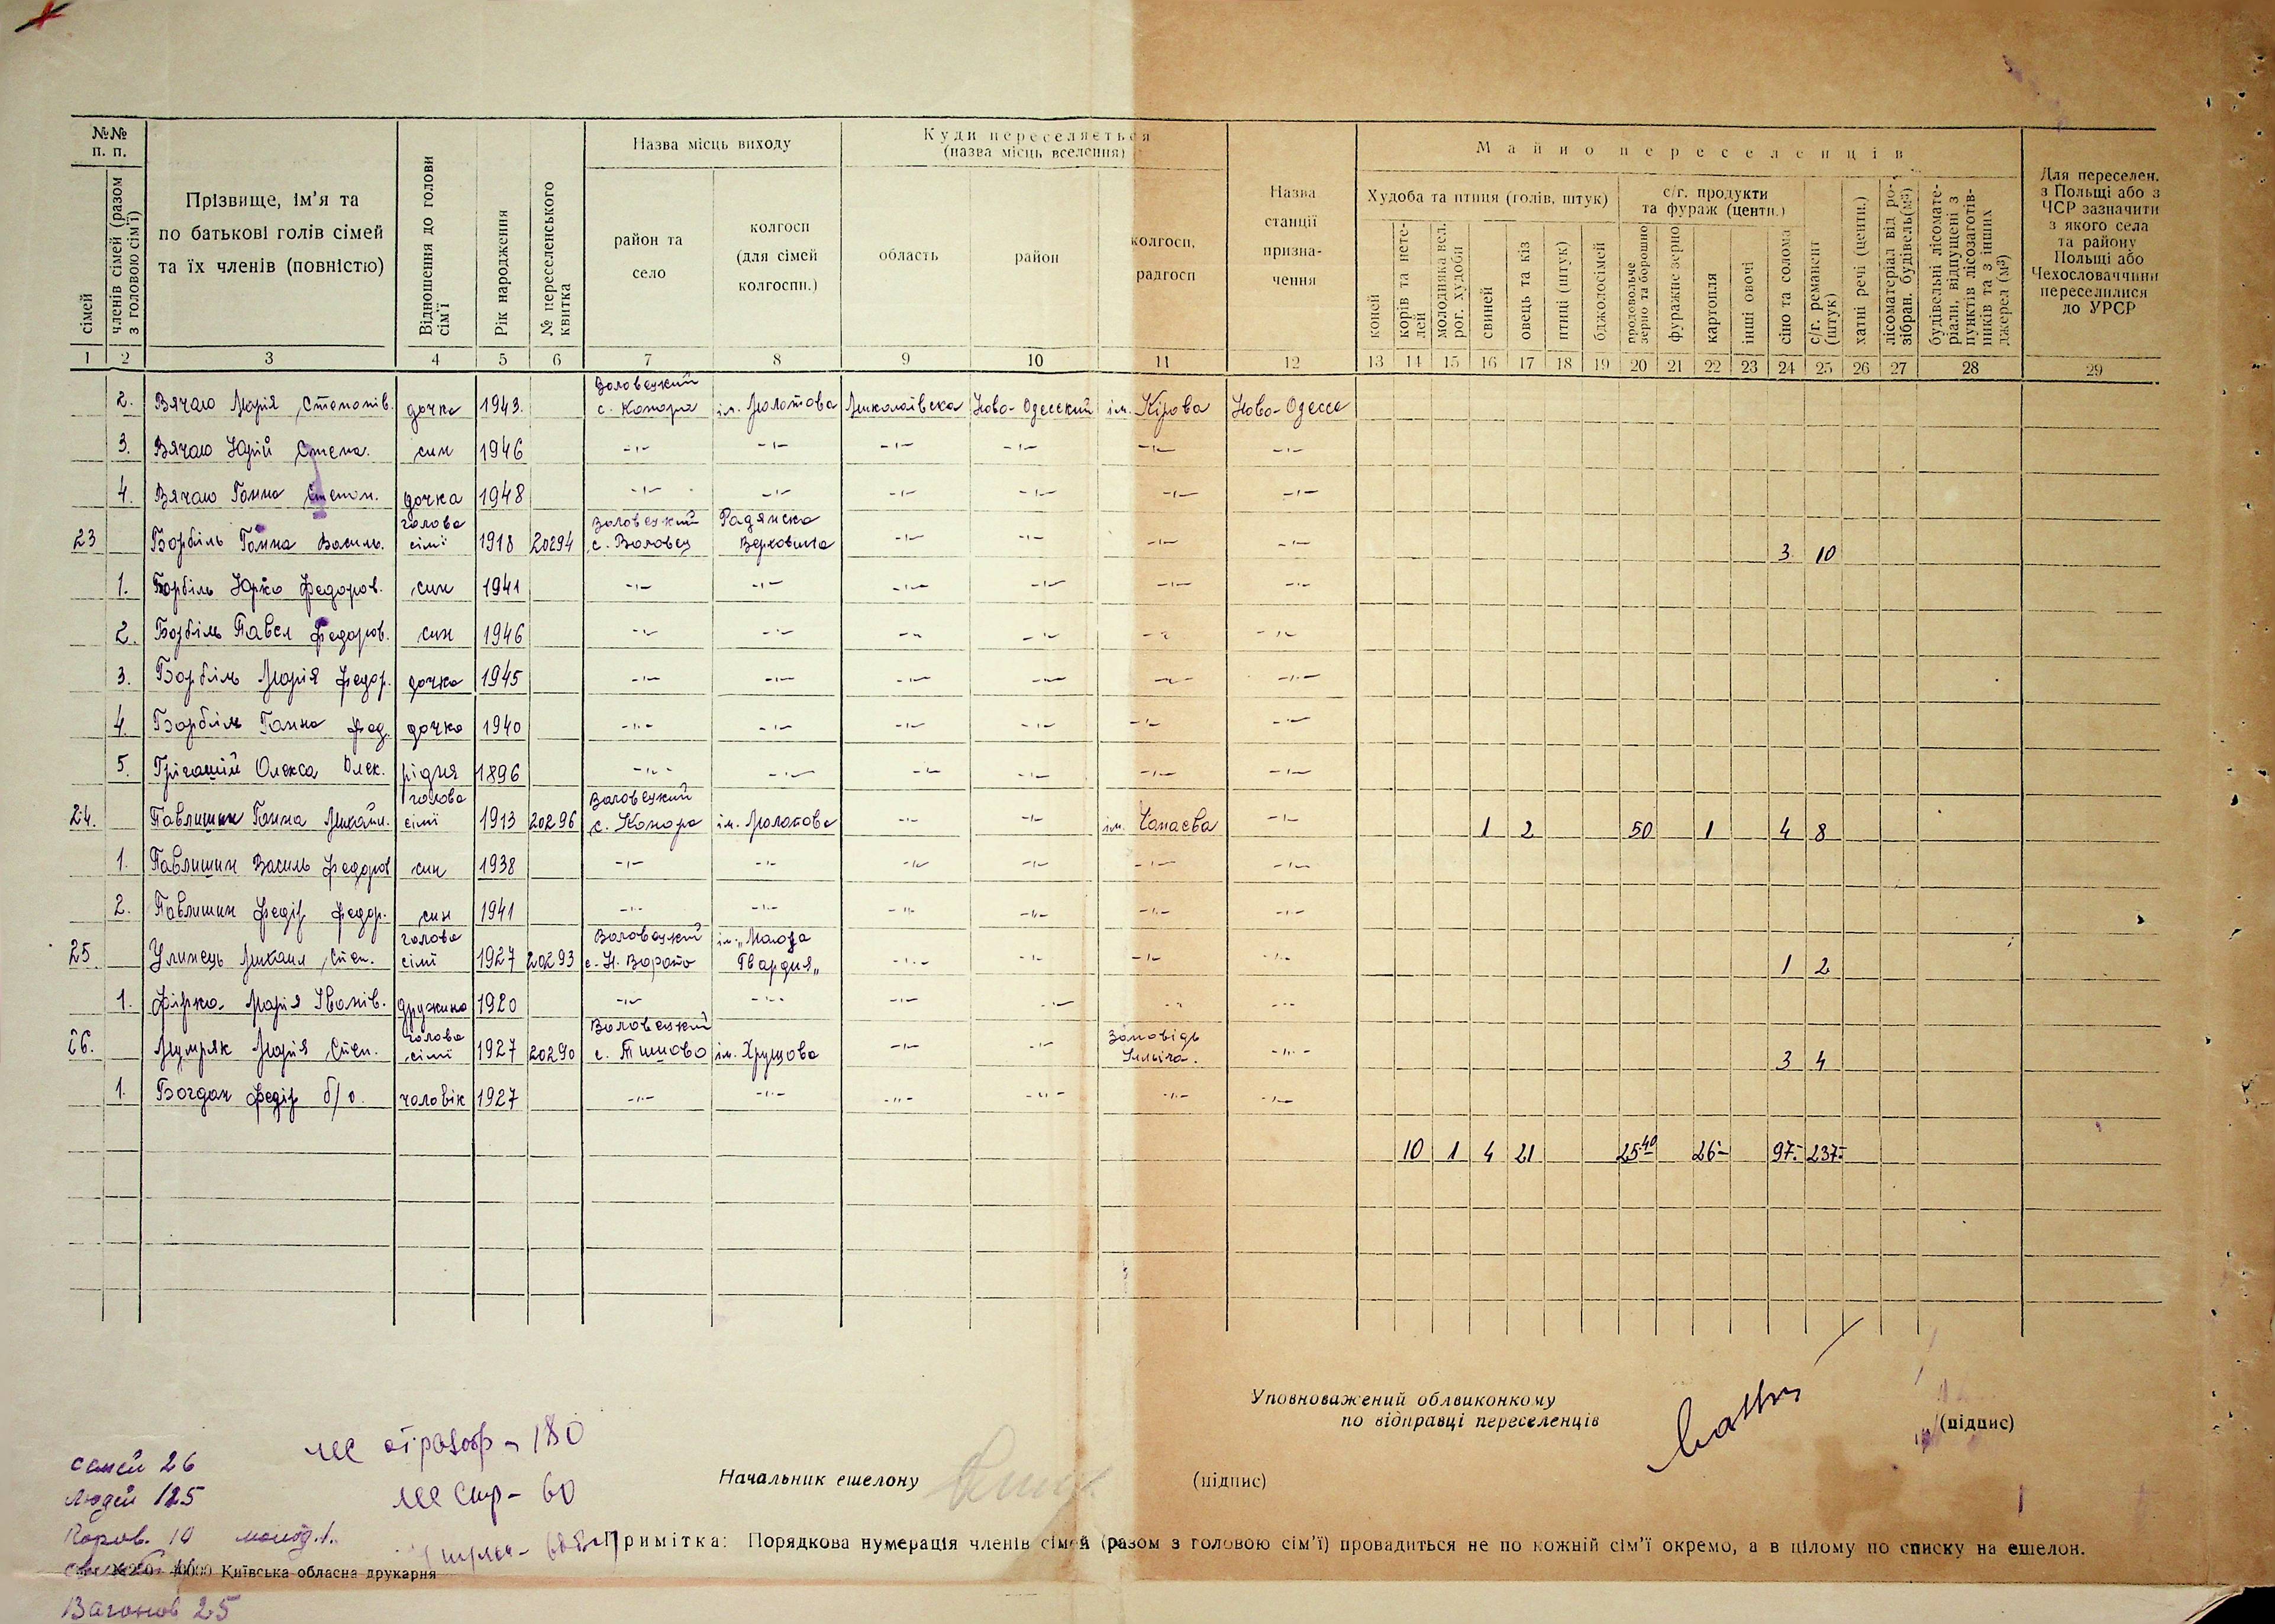 №№ п. п.
сімей
членів сімей (разом з головою сім'ї)
Прізвище, ім'я та
по батькові голів сімей
та їх членів (повністю)
Відношення до голови сім'ї
Рік народження
№ переселенського квитка
Назва місць виходу
район та село
колгосп (для сімей колгоспн.)
Куди переселяється
(назва місць вселення)
область
район
колгосп, радгосп
Назва станції призна-чення
Майно переселенців
Худоба та птиця (голів, штук)
коней
корів та нете-лей
молодняка вел. рог. худоби
свиней
овець та кіз
птиці (штук)
бджолосімей
с/г. продукти та фураж (центн.)
продовольче зерно та борошно
фуражне зерно
картопля
інші овочі
сіно та солома
с/г. реманент (штук)
хатні речі (центн.)
лісоматеріал від ро-зібран. будівель(м³)
будівельні лісомате-ріали, відпущені з пунктів лісозаготів-ників та з інших джерел (м³)
Для переселен. з Польщі або з ЧСР зазначити з якого села та району Польщі або Чехословаччини переселилися до УРСР
1 2 3 4 5 6 7 8 9 10 11 12 13 14 15 16 17 18 19 20 21 22 23 24 25 26 27 28 29
2. Вячало Марія Степанів. дочка 1943. Воловецкий с. Канора ім. Молотова Миколаївска Ново-Одесский ім. Кірова Ново-Одесса
3. Вячало Юрій Степа. син 1946 -"- -"- -"- -"- -"- -"-
4. Вячало Ганна Степан. дочка 1948 -"- -"- -"- -"- -"- -"-
23 Борбіль Ганна Василь. голова сімї 1918 20294 Воловецкий с. Воловец Радянска Верховина -"- -"- -"- -"- 3 10
1. Борбіль Юрко Федоров. син 1941 -"- -"- -"- -"- -"- -"-
2. Борбіль Павел Федоров. син 1946 -"- -"- -"- -"- -"- -"-
3. Борбіль Марія Федор. дочка 1945 -"- -"- -"- -"- -"- -"-
4. Борбіль Ганна Фед. дочка 1940 -"- -"- -"- -"- -"- -"-
5. Олекса Олек. рідня 1896 -"- -"- -"- -"- -"- -"-
24. Павлишин Ганна Михайл. голова сімї 1913 20296 Воловецкий с. Канора ім. Молотова -"- -"- ім. Чапаєва -"- 1 2 50 1 4 8
1. Павлишин Василь Федоров син 1938 -"- -"- -"- -"- -"- -"-
2. Павлишин Федір Федор. син 1941 -"- -"- -"- -"- -"- -"-
25 Улинець Михаил Степ. голова сімї 1927 20293 Воловецкий с. Н. Ворота ім. „Молода Гвардия„ -"- -"- -"- -"- 1 2
1. Фірка Марія Іванів. дружина 1920 -"- -"- -"- -"- -"- -"-
26. Мумряк Марія Степ. голова сімї 1927 20290 Воловецкий с. Тишово ім. Хрущова -"- -"- Заповідь Ілліча. -"- 3 4
1. Богдан Федір б/о. чоловік 1927 -"- -"- -"- -"- -"- -"-
10 1 4 21 25.40 26- 97.- 237.-
Уповноважений облвиконкому
по відправці переселенців
(підпис)
Начальник ешелону
(підпис)
семей 26
людей 125
Коров. 10 молод. 1.
Вагонов 25
180
60
Примітка: Порядкова нумерація членів сімей (разом з головою сім'ї) провадиться не по кожній сім'ї окремо, а в цілому по списку на ешелон.
Київська обласна друкарня